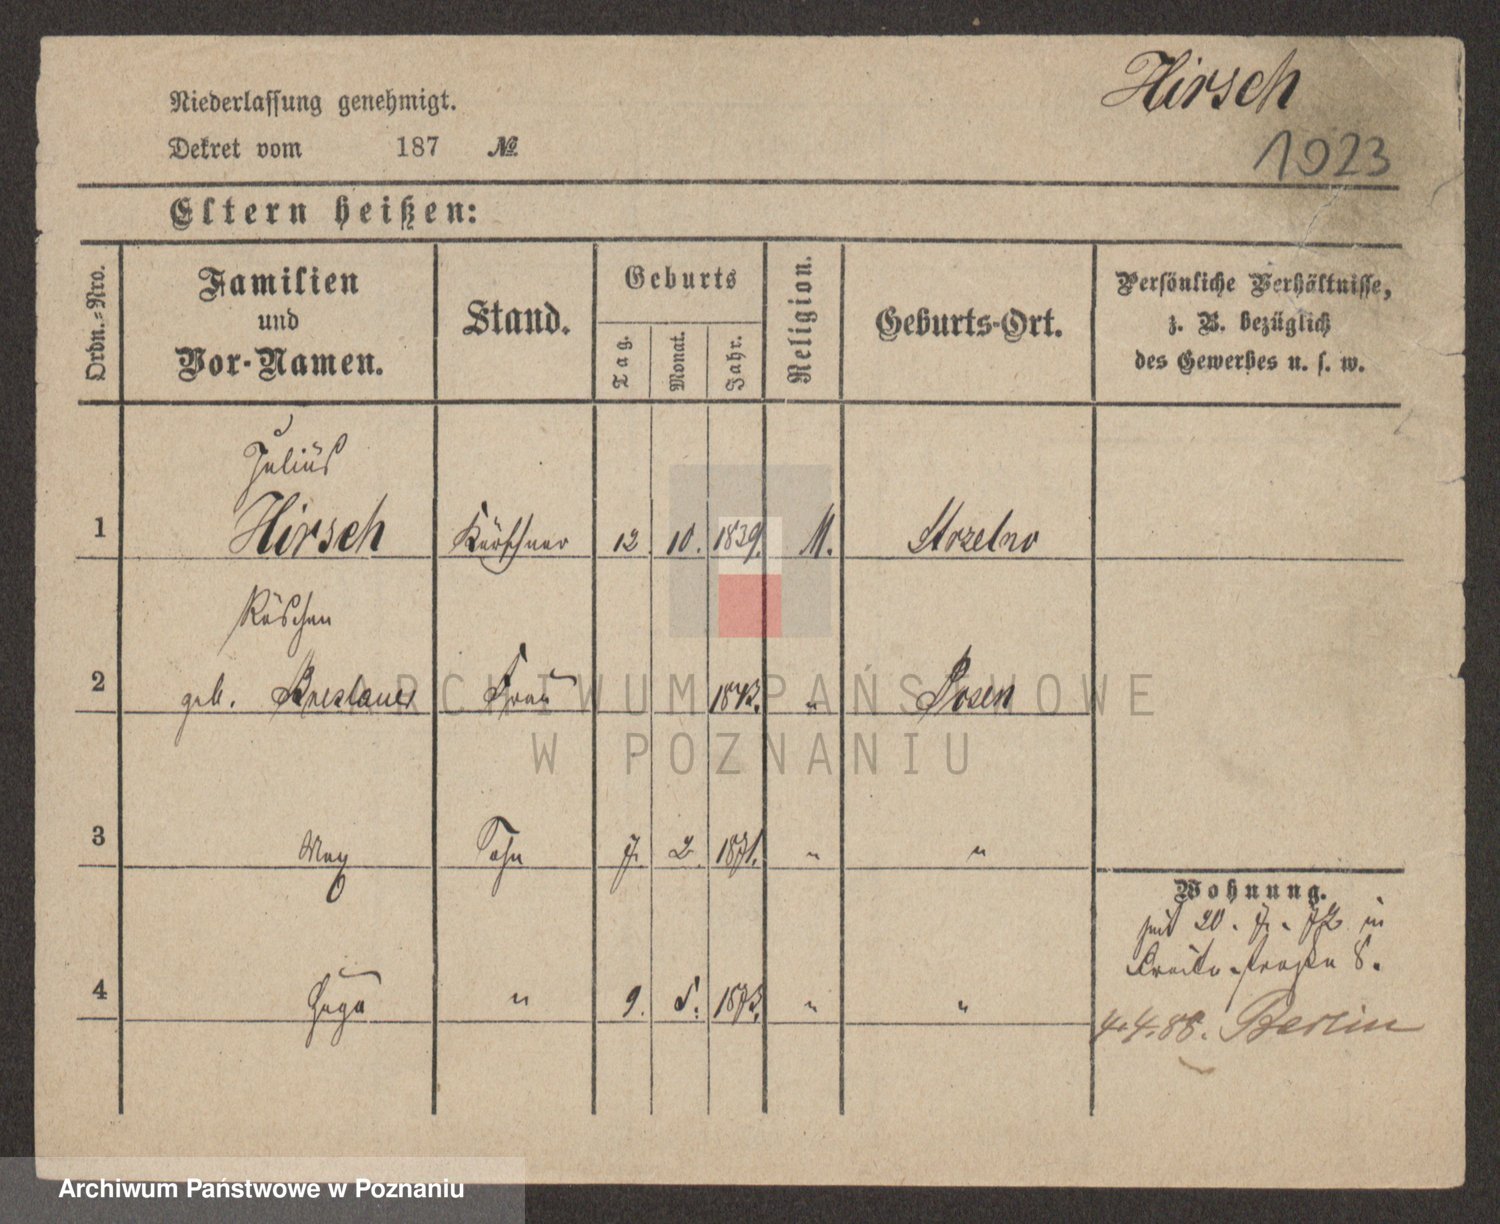 Hirsch
Niederlassung genehmigt.
1023
Dekret vom 187 №
Eltern heißen:
Ordn.-Nro.
Familien
und
Vor-Namen.
Stand.
Geburts
Tag.
Monat.
Jahr.
Religion.
Geburts-Ort.
Persönliche Verhältnisse,
z. B. bezüglich
des Gewerbes u. s. w.
Julius
1 Hirsch Kürschner 12. 10. 1839. M. Strzelno
Röschen
2 geb. Breslauer Frau 1843. " Posen
3 Max Sohn 7. 2. 1871. " "
Wohnung.
seit 20. 7. 72 in
Breite-straße 8.
4 Hugo " 9. 5. 1873. " "
4.4.88. Berlin
ARCHIWUM PAŃSTWOWE
W POZNANIU
Archiwum Państwowe w Poznaniu